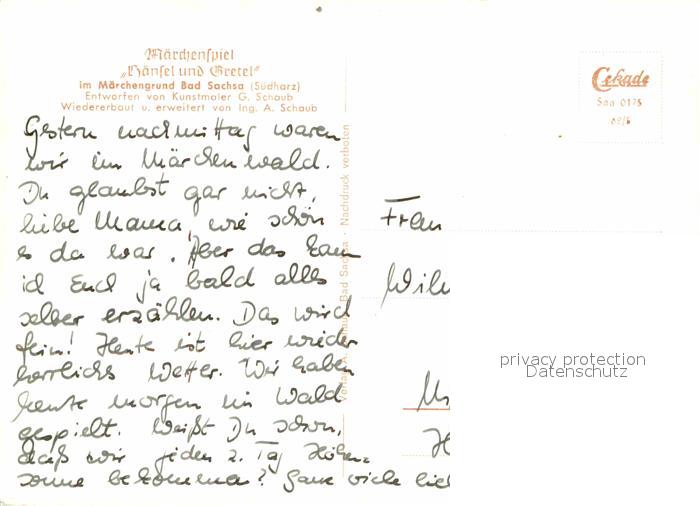 Märchenspiel
„Hänsel und Gretel"
im Märchengrund Bad Sachsa (Südharz)
Entworfen von Kunstmaler G. Schaub
Wiedererbaut u. erweitert von Ing. A. Schaub
Gestern nachmittag waren
wir im Märchenwald.
Du glaubst gar nicht,
liebe Mama, wie schön
es da war. Aber das kann
ich Euch ja bald alles
selber erzählen. Das wird
fein! Heute ist hier wieder
herrliches Wetter. Wir haben
heute morgen im Wald
gespielt. Weißt Du schon,
daß wir jeden 2. Tag Höhen-
sonne bekommen? Ganz viele
Verlag A. Schaub, Bad Sachsa · Nachdruck verboten
Cekade
Saa 0175
Frau
privacy protection
Datenschutz